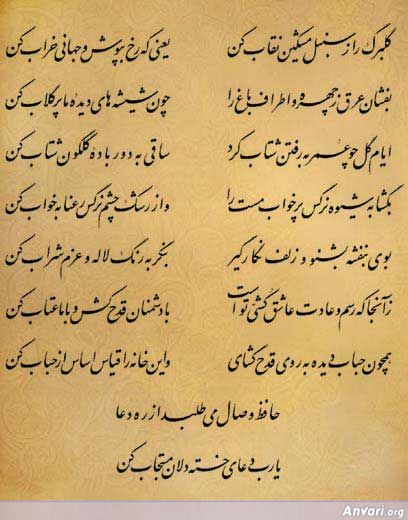 گلبرگ را ز سنبل مشکین نقاب کن یعنی که رخ بپوش و جهانی خراب کن
بفشان عرق ز چهره و اطراف باغ را چون شیشه های دیده ما پر گلاب کن
ایام گل چو عمر به رفتن شتاب کرد ساقی به دور باده گلگون شتاب کن
بگشا به شیوه نرگس پر خواب مست را و از رشک چشم نرگس رعنا به خواب کن
بوی بنفشه بشنو و زلف نگار گیر بنگر به رنگ لاله و عزم شراب کن
زآنجا که رسم و عادت عاشق کشی تو است با دشمنان قدح کش و با ما عتاب کن
همچون حباب دیده به روی قدح گشای واین خانه را قیاس اساس از حباب کن
حافظ وصال می طلبد از ره دعا
یارب دعای خسته دلان مستجاب کن
Anvari.org